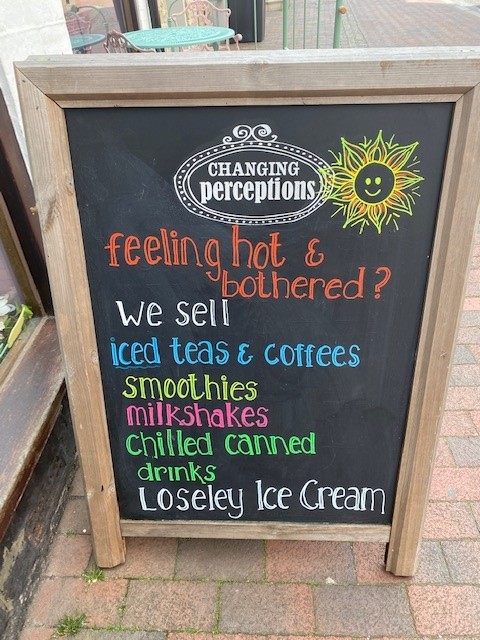 CHANGING
perceptions
feeling hot &
bothered?
We sell
iced teas & coffees
smoothies
milkshakes
chilled canned
drinks
Loseley Ice Cream